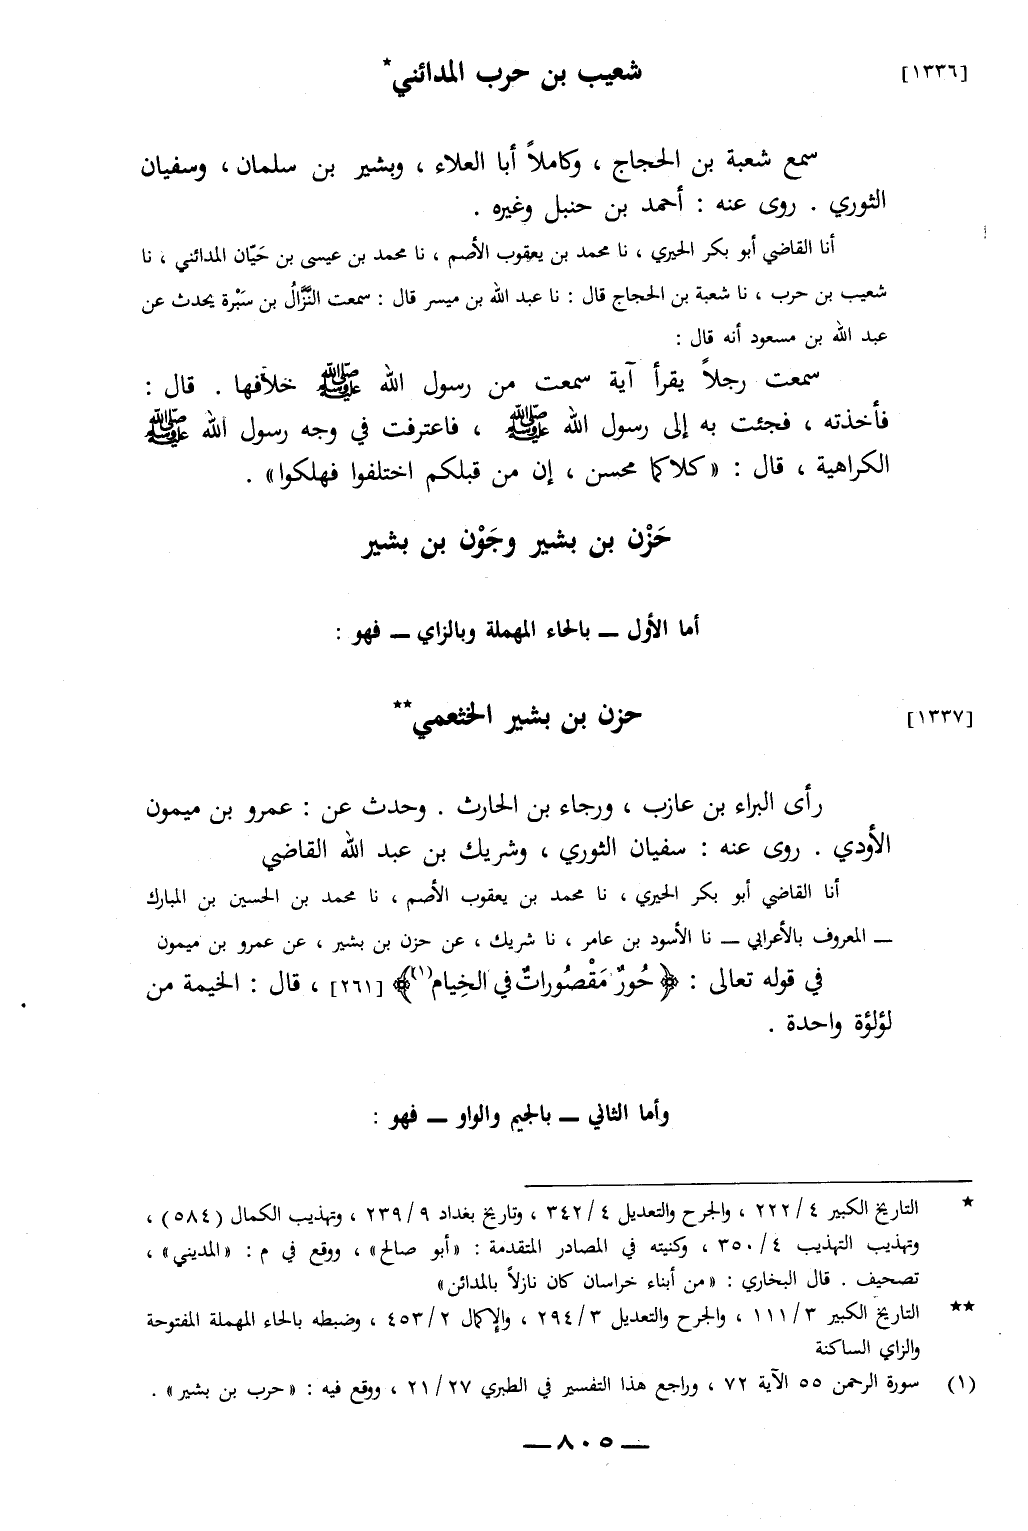 [١٣٣٦] شعيب بن حرب المدائني*
سمع شعبة بن الحجاج ، وكاملاً أبا العلاء ، وبشير بن سلمان ، وسفيان
الثوري . روى عنه : أحمد بن حنبل وغيره .
أنا القاضي أبو بكر الحيري ، نا محمد بن يعقوب الأصم ، نا محمد بن عيسى بن حَيّان المدائني ، نا
شعيب بن حرب ، نا شعبة بن الحجاج قال : نا عبد الله بن ميسر قال : سمعت النَّزَّالُ بن سَبْرة يحدث عن
عبد الله بن مسعود أنه قال :
سمعت رجلاً يقرأ آية سمعت من رسول الله ﷺ خلافها . قال :
فأخذته ، فجئت به إلى رسول الله ﷺ ، فاعترفت في وجه رسول الله ﷺ
الكراهية ، قال : «كلاكما محسن ، إن من قبلكم اختلفوا فهلكوا» .
حَزْن بن بشير وجَوْن بن بشير
أما الأول ــ بالحاء المهملة وبالزاي ــ فهو :
[١٣٣٧] حزن بن بشير الخثعمي**
رأى البراء بن عازب ، ورجاء بن الحارث . وحدث عن : عمرو بن ميمون
الأودي . روى عنه : سفيان الثوري ، وشريك بن عبد الله القاضي
أنا القاضي أبو بكر الحيري ، نا محمد بن يعقوب الأصم ، نا محمد بن الحسين بن المبارك
ــ المعروف بالأعرابي ــ نا الأسود بن عامر ، نا شريك ، عن حزن بن بشير ، عن عمرو بن ميمون
في قوله تعالى : ﴿حُورٌ مَقْصُوراتٌ في الخِيام(١)﴾ [٢٦١] ، قال : الخيمة من
لؤلؤة واحدة .
وأما الثاني ــ بالجيم والواو ــ فهو :
* التاريخ الكبير ٢٢٢/٤ ، والجرح والتعديل ٣٤٢/٤ ، وتاريخ بغداد ٢٣٩/٩ ، وتهذيب الكمال (٥٨٤) ،
وتهذيب التهذيب ٣٥٠/٤ ، وكنيته في المصادر المتقدمة : «أبو صالح» ، ووقع في م : «المديني» ،
تصحيف . قال البخاري : «من أبناء خراسان كان نازلاً بالمدائن»
** التاريخ الكبير ١١١/٣ ، والجرح والتعديل ٢٩٤/٣ ، والإكمال ٤٥٣/٢ ، وضبطه بالحاء المهملة المفتوحة
والزاي الساكنة
(١) سورة الرحمن ٥٥ الآية ٧٢ ، وراجع هذا التفسير في الطبري ٢١/٢٧ ، ووقع فيه : «حرب بن بشير» .
ــ ٨٠٥ ــ